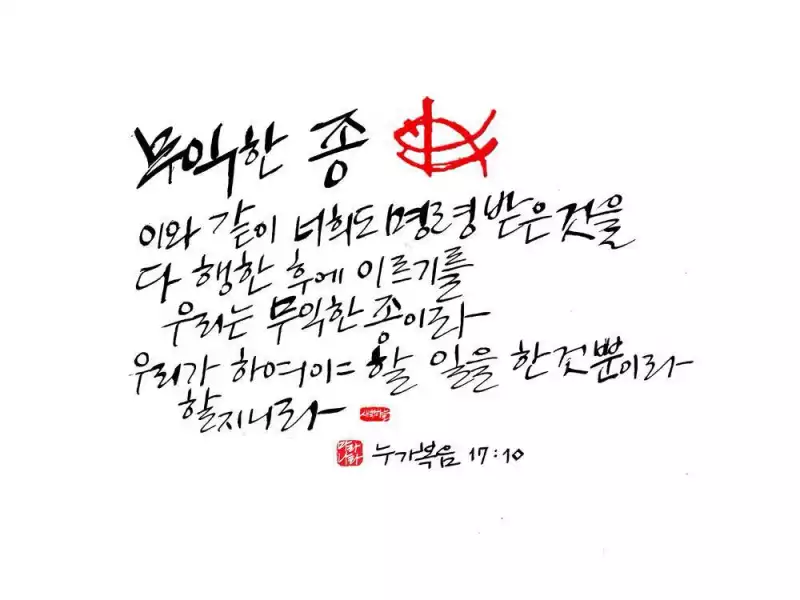 무익한 종
이와 같이 너희도 명령 받은 것을
다 행한 후에 이르기를
우리는 무익한 종이라
우리가 하여야 할 일을 한것뿐이라
할지니라
누가복음 17:10